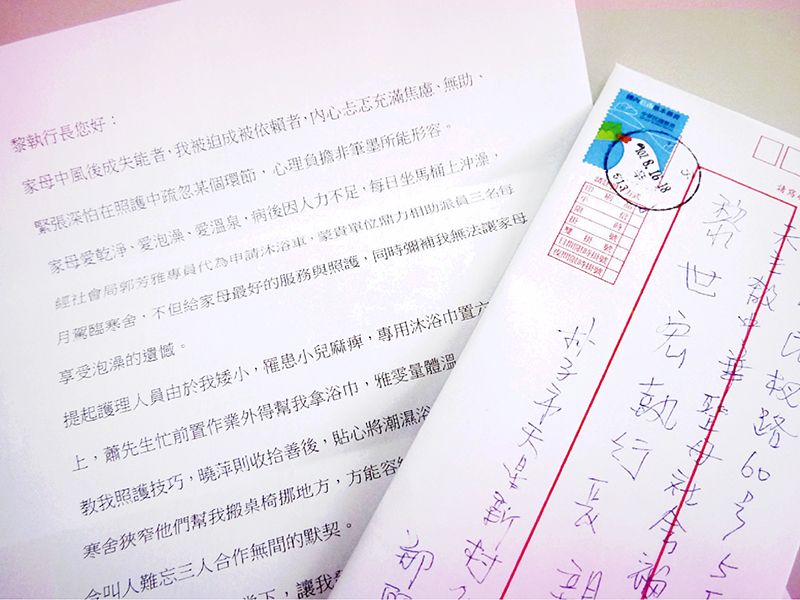 黎執行長您好：
家母中風後成失能者，我被迫成被依賴者，內心忐忑充滿焦慮、無助、
緊張深怕在照護中疏忽某個環節，心理負擔非筆墨所能形容。
家母愛乾淨、愛泡澡、愛溫泉，病後因人力不足，每日坐馬桶上沖澡，
經社會局郭芳雅專員代為申請沐浴車，蒙貴單位鼎力相助派員三名每
月駕臨寒舍，不但給家母最好的服務與照護，同時彌補我無法讓家母
享受泡澡的遺憾。
提起護理人員由於我矮小，罹患小兒麻痺，專用沐浴巾置六
上，蕭先生忙前置作業外得幫我拿浴巾，雅雯量體溫
教我照護技巧，曉萍則收拾善後，貼心將潮濕浴
寒舍狹窄他們幫我搬桌椅挪地方，方能容
令叫人難忘三人合作無間的默契。
下，讓我
民權路60号5
天主教中華聖母社會福
黎世宏執行長